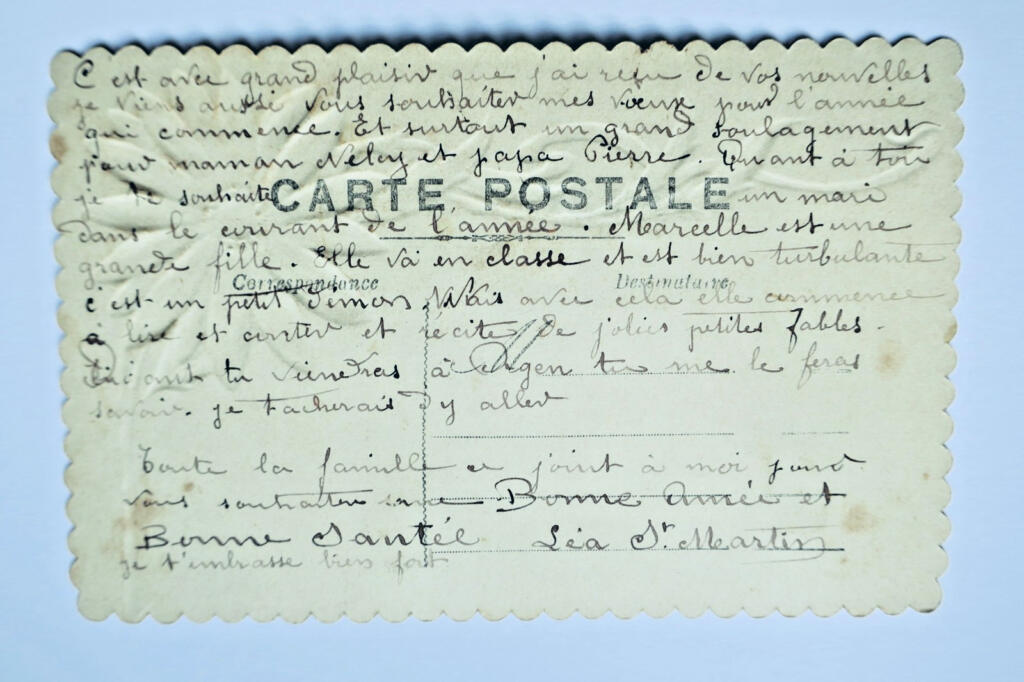 C est avec grand plaisir que j'ai reçu de vos nouvelles
je viens aussi vous souhaiter mes vœux pour l'année
qui commence. Et surtout un grand soulagement
pour maman Nelcy et papa Pierre. Quant à toi
je te souhaite un mari
CARTE POSTALE
dans le courant de l'année. Marcelle est une
grande fille. Elle va en classe et est bien turbulante
Correspondance Destinataire
c'est un petit Démon. Mais avec cela elle commence
à lire et conter et récite de jolies petites fables.
tu viendras à Agen tu me le feras
savoir. je tacherais d'y aller
Toute la famille ce joint à moi pour
vous souhaiter une Bonne Année et
Bonne Santée Léa St Martin
je t'embrasse bien fort